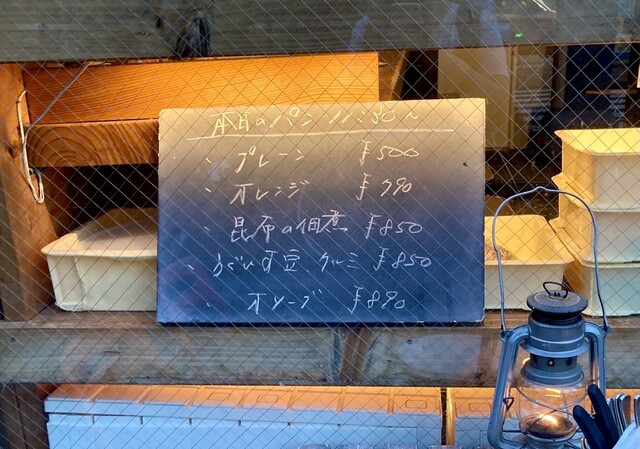 本日のパン 11:30〜
・プレーン ¥500
・オレンジ ¥790
・昆布の佃煮 ¥850
・うぐいす豆、クルミ ¥850
・オリーブ ¥890